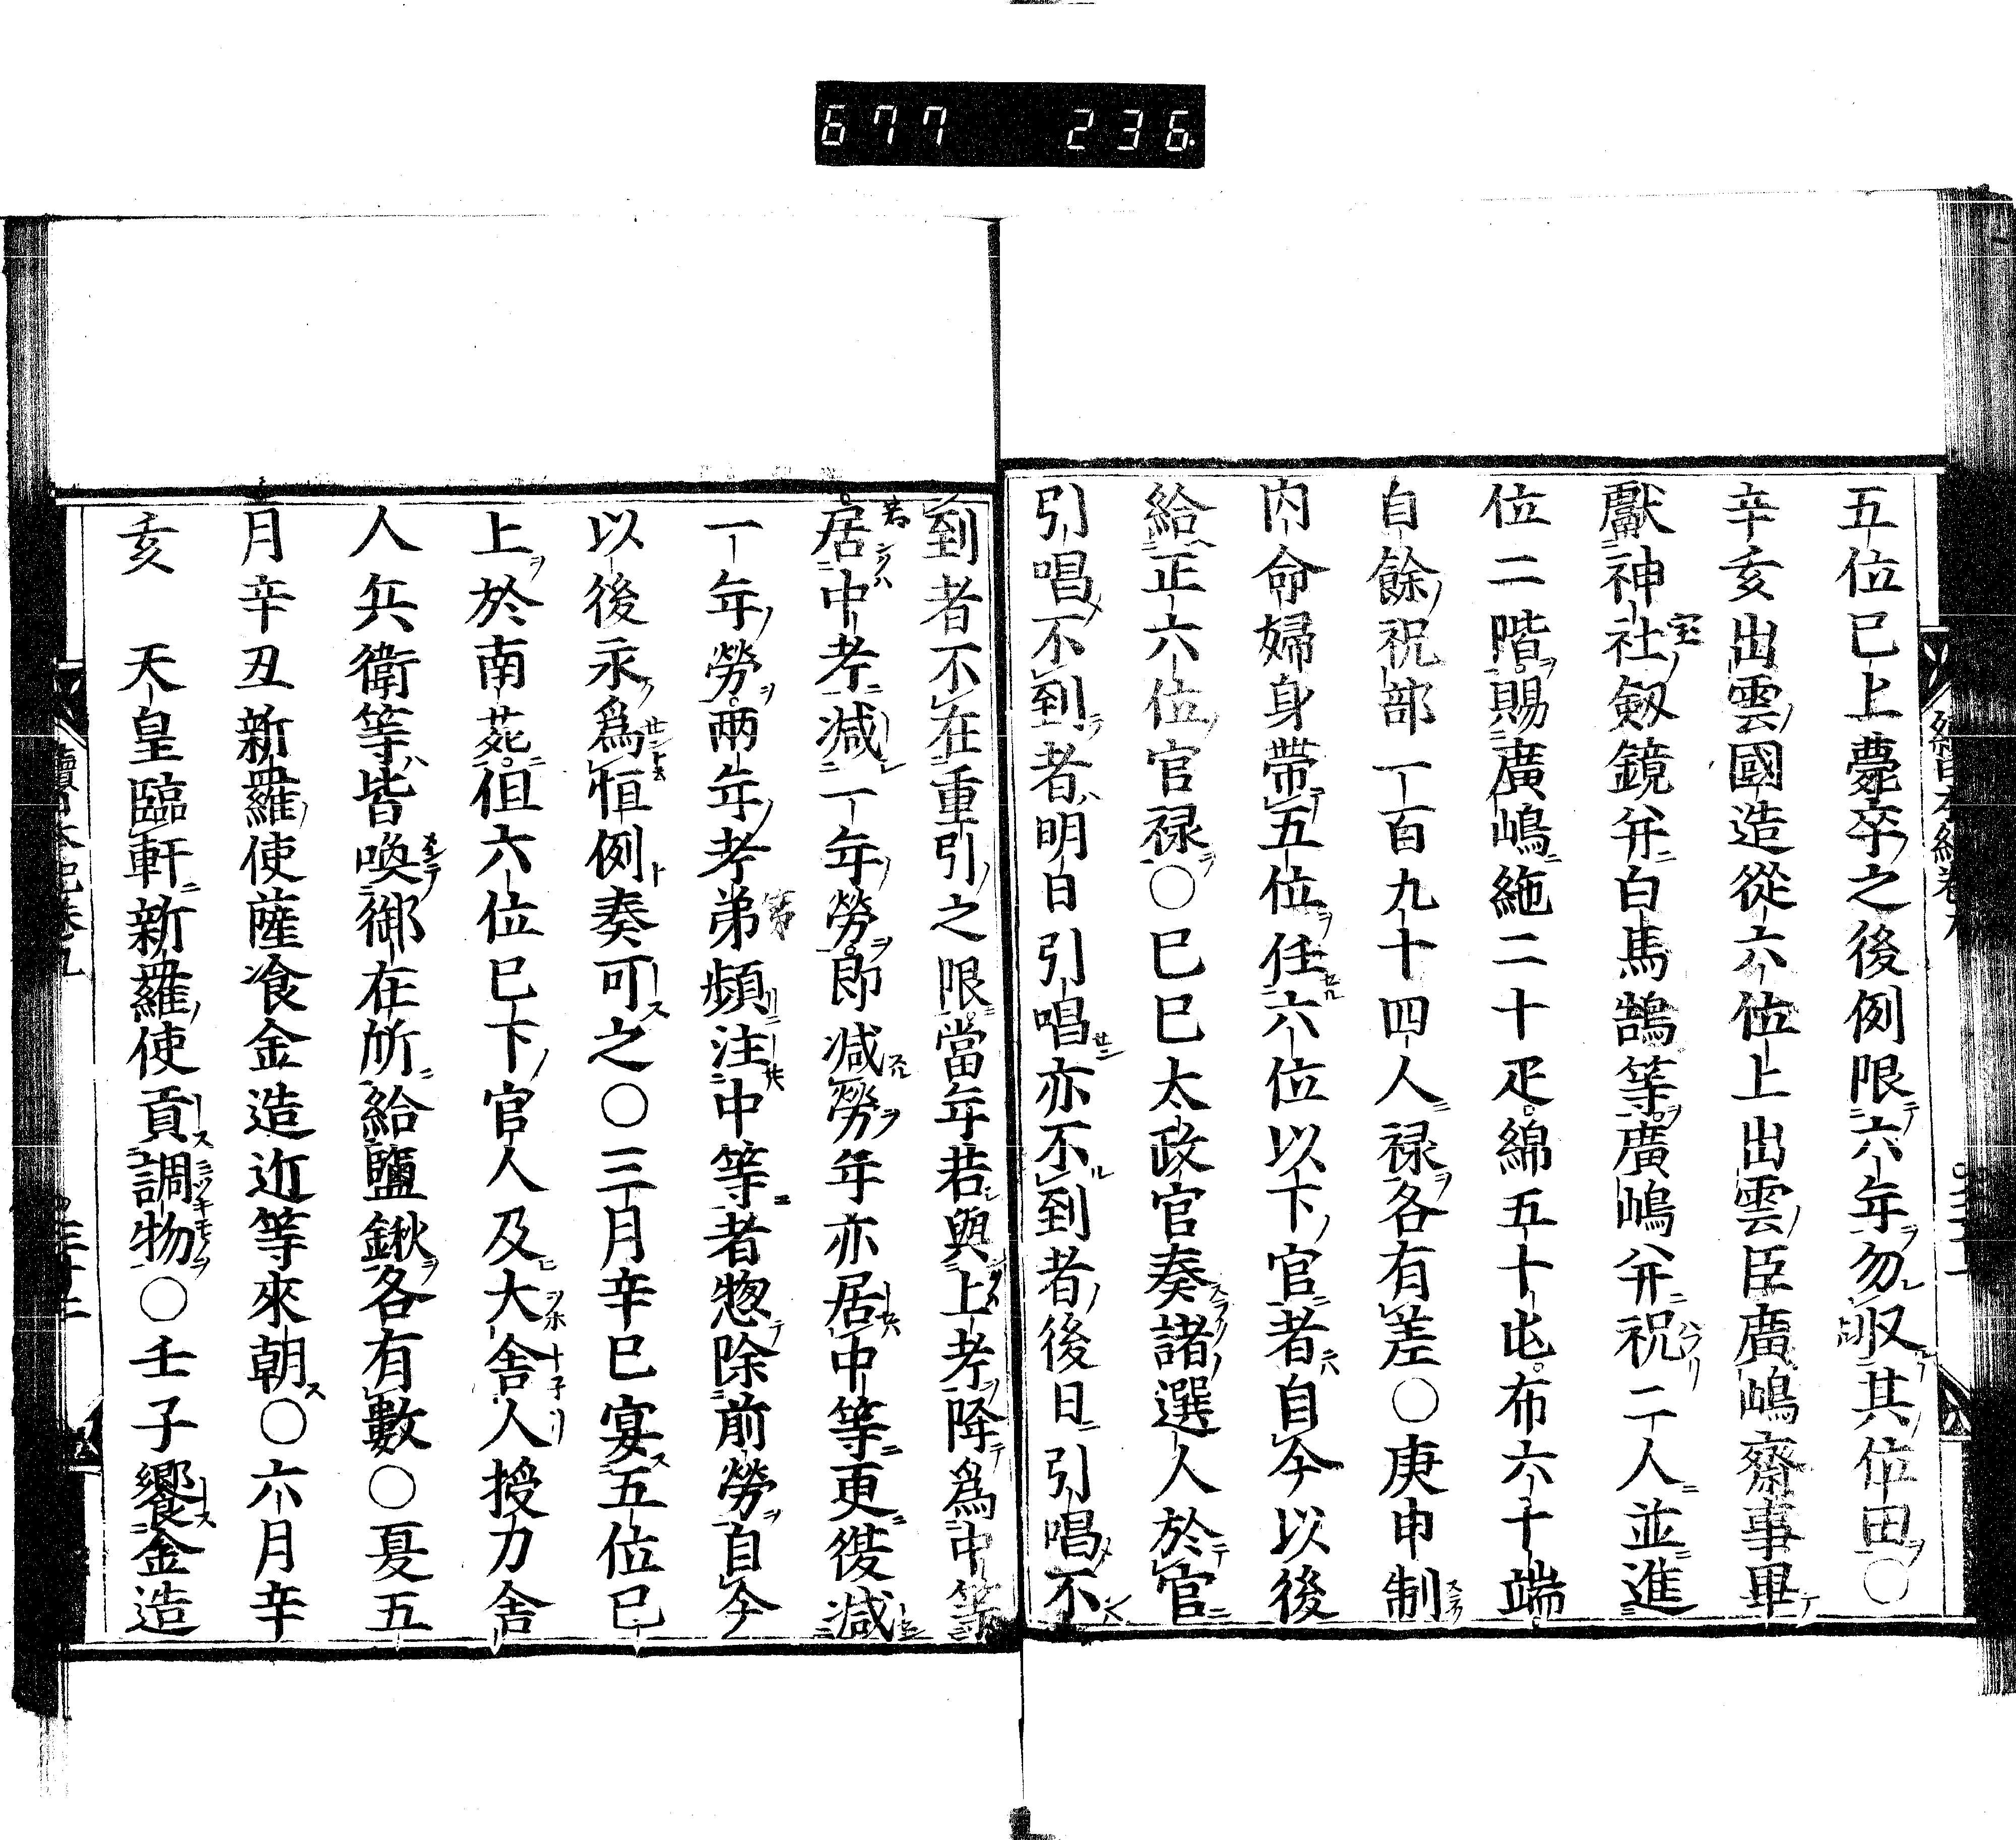 677 236
五位已上薨卒之後例限六年勿収其位田〇
辛亥出雲國造從六位上出雲臣廣嶋齋事畢
獻神社劔鏡并白馬鵠等廣嶋并祝二人並進
位二階賜廣嶋絁二十疋綿五十屯布六十端
自餘祝部一百九十四人禄各有差〇庚申制
内命婦身帶五位任六位以下官者自今以後
給正六位官禄〇已巳太政官奏諸選人於官
引唱不到者明日引唱亦不到者後日引唱不
到者不在重引之限當年若與上考降爲中等
居中考減一年勞即減勞年亦居中等更復減
一年勞兩年考弟頻注中等者惣除前勞自今
以後永爲恒例奏可之〇三月辛巳宴五位已
上於南苑但六位已下官人及大舍人授力舍
人兵衛等皆喚御在所給鹽鍬各有數〇夏五
月辛丑新羅使薩飡金造近等來朝〇六月辛
亥　天皇臨軒新羅使貢調物〇壬子饗金造